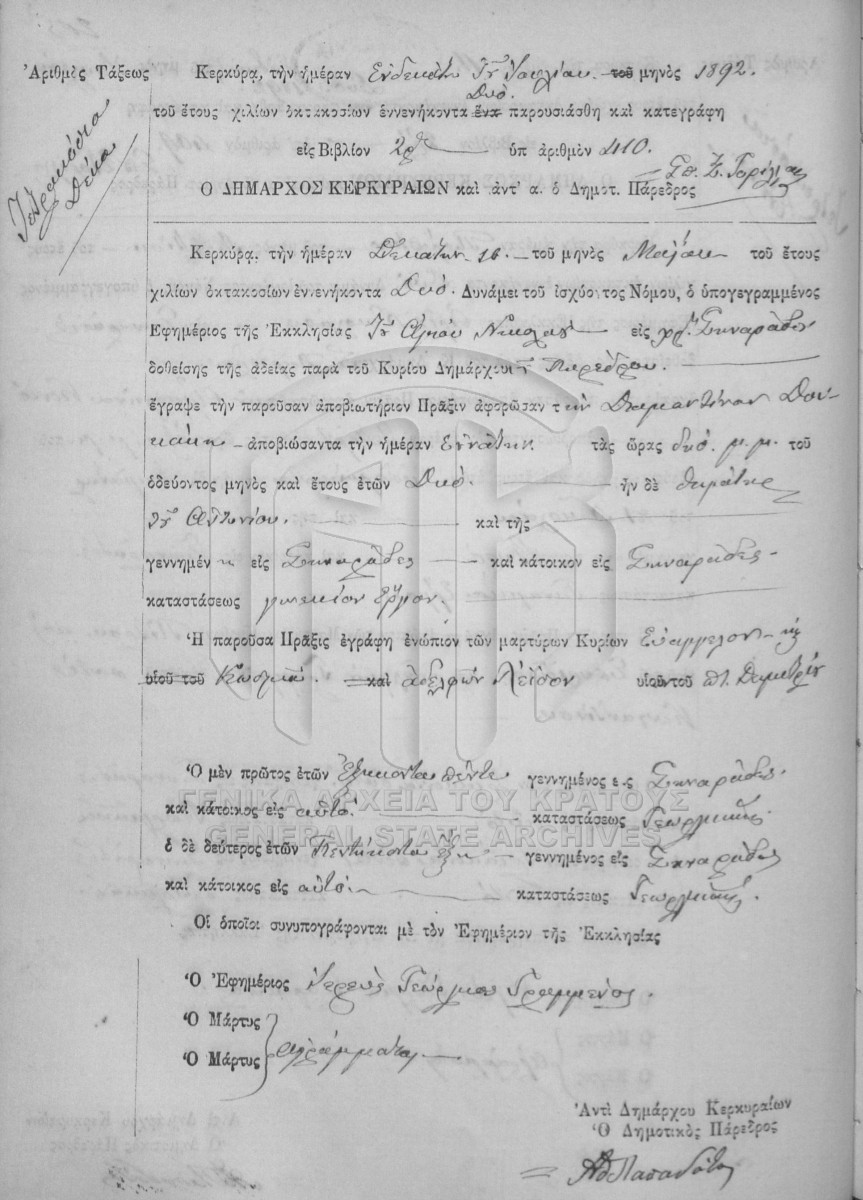 Ἀριθμὸς Τάξεως
Τετρακόσια Δέκα
Κερκύρᾳ, τὴν ἡμέραν Ἑνδεκάτη Ἰουλίου τοῦ μηνὸς 1892.
Δύο.
τοῦ ἔτους χιλίων ὀκτακοσίων ἐννενήκοντα ἕνα παρουσιάσθη καὶ κατεγράφη
εἰς Βιβλίον 2ον ὑπ ἀριθμὸν 410.
Ο ΔΗΜΑΡΧΟΣ ΚΕΡΚΥΡΑΙΩΝ καὶ ἀντ' α. ὁ Δημοτ. Πάρεδρος
Κερκύρᾳ, τὴν ἡμέραν Δεκάτην τοῦ μηνὸς Μαΐου τοῦ ἔτους
χιλίων ὀκτακοσίων ἐννενήκοντα Δύο. Δυνάμει τοῦ ἰσχύοντος Νόμου, ὁ ὑπογεγραμμένος
Ἐφημέριος τῆς Ἐκκλησίας Τοῦ Ἁγίου Νικολάου εἰς χρ. Σιναράδων
δοθείσης τῆς ἀδείας παρὰ τοῦ Κυρίου Δημάρχου Παρέδρου.
ἔγραψε τὴν παροῦσαν ἀποβιωτήριον Πρᾶξιν ἀφορῶσαν τὴν Διαμαντίναν Δου-
κάκη ἀποβιώσαντα τὴν ἡμέραν Ἐννάτην τὰς ὥρας δύο. μ.μ. τοῦ
ὁδεύοντος μηνὸς καὶ ἔτους ἐτῶν Δύο. ἦν δὲ θυγάτηρ
τοῦ Ἀντωνίου. καὶ τῆς
γεννημένη εἰς Σιναράδες καὶ κάτοικον εἰς Σιναράδες
καταστάσεως
Ἡ παροῦσα Πρᾶξις ἐγράφη ἐνώπιον τῶν μαρτύρων Κυρίων Εὐάγγελον
υἱοῦ τοῦ καὶ υἱοῦ τοῦ π. Δημητρίου
Ὁ μὲν πρῶτος ἐτῶν Ἑξήκοντα πέντε γεννημένος εἰς Σιναράδες
καὶ κάτοικος εἰς αὐτό. καταστάσεως Γεωργικῆς.
ὁ δὲ δεύτερος ἐτῶν Πεντήκοντα ἓξ γεννημένος εἰς Σιναράδες
καὶ κάτοικος εἰς αὐτό. καταστάσεως Γεωργικῆς.
Οἱ ὁποῖοι συνυπογράφονται μὲ τὸν Ἐφημέριον τῆς Ἐκκλησίας
Ὁ Ἐφημέριος Ἱερεὺς Γεώργιος Γραμμένος.
Ὁ Μάρτυς
Ὁ Μάρτυς ἀγράμματοι
Ἀντὶ Δημάρχου Κερκυραίων
Ὁ Δημοτικὸς Πάρεδρος
ΓΕΝΙΚΑ ΑΡΧΕΙΑ ΤΟΥ ΚΡΑΤΟΥΣ
GENERAL STATE ARCHIVES